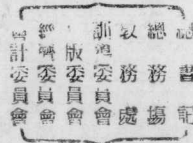 書記
總務塲
教務處
訓導委員會
版委員會
經濟委員會
計委員會